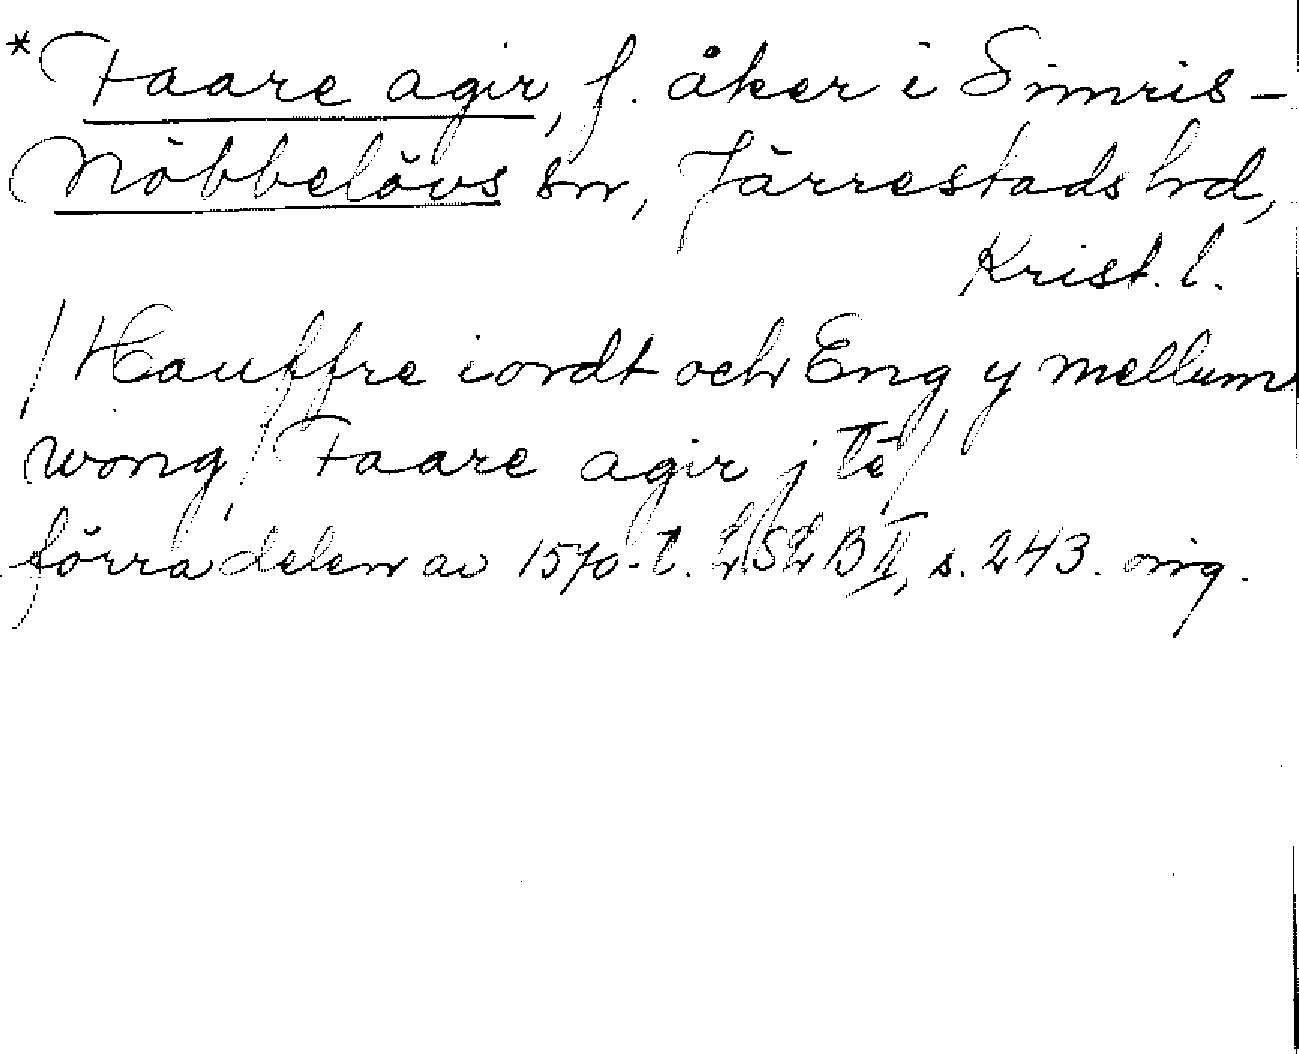 *Faare agir, f. åker i Simris-
Nöbbelövs sn, Järrestads hd,
Krist. l.
/Hauffre iordt och Eng y mellum
wong, / Faare agir j te/
förra delen av 1570-t. LSLB II, s. 243. mg.